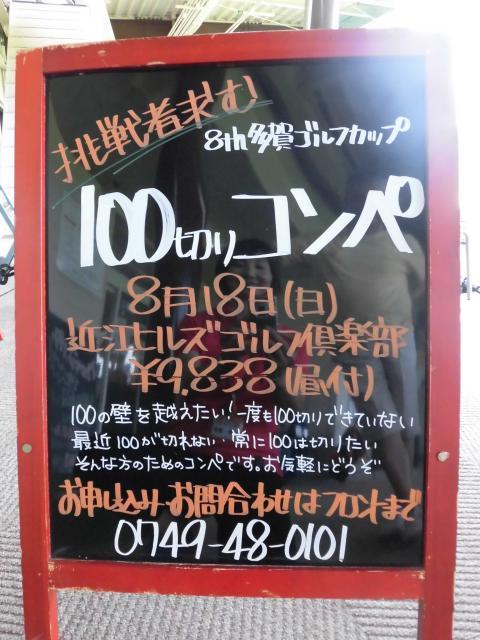 挑戦者求む!
8th 多賀ゴルフカップ
100切りコンペ
8月18日(日)
近江ヒルズゴルフ倶楽部
¥9,838(昼付)
100の壁を越えたい!一度も100切りできていない
最近100が切れない・常に100は切りたい
そんな方のためのコンペです。お気軽にどうぞ
お申し込み・お問合わせはフロントまで
0749-48-0101